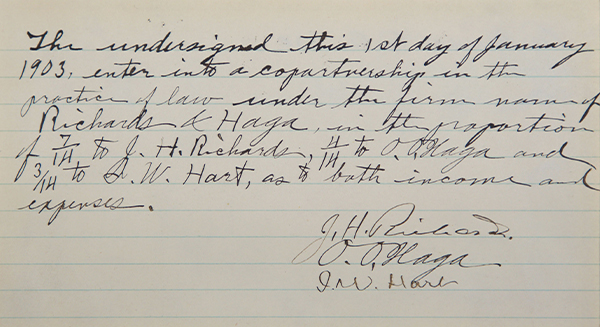 The undersigned this 1st day of January
1903, enter into a copartnership in the
practice of law under the firm name of
Richards & Haga, in the proportion
of 7/14 to J. H. Richards, 4/14 to O. O. Haga and
3/14 to L. W. Hart, as to both income and
expenses.
J. H. Richards.
O. O. Haga
I. W. Hart